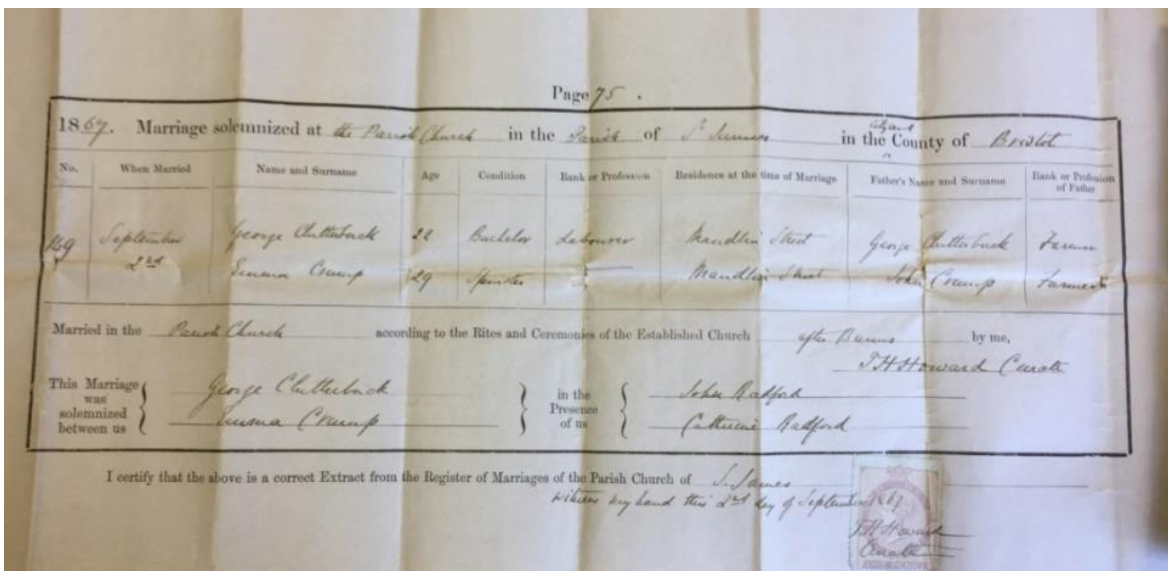 Page 75.
1867. Marriage solemnized at the Parish Church in the Parish of St James in the City and County of Bristol
No. When Married Name and Surname Age Condition Rank or Profession Residence at the time of Marriage Father's Name and Surname Rank or Profession of Father
149 September 2nd George Clutterbuck 22 Bachelor Labourer Maudlin Street George Clutterbuck Farmer
Emma Crump 29 Spinster Maudlin Street John Crump Farmer
Married in the Parish Church according to the Rites and Ceremonies of the Established Church after Banns by me,
T H Howard Curate
This Marriage was solemnized between us George Clutterbuck in the Presence of us John Radford
Emma Crump Catherine Radford
I certify that the above is a correct Extract from the Register of Marriages of the Parish Church of S. James
Witness my hand this 2nd day of September 1867
T H Howard
Curate